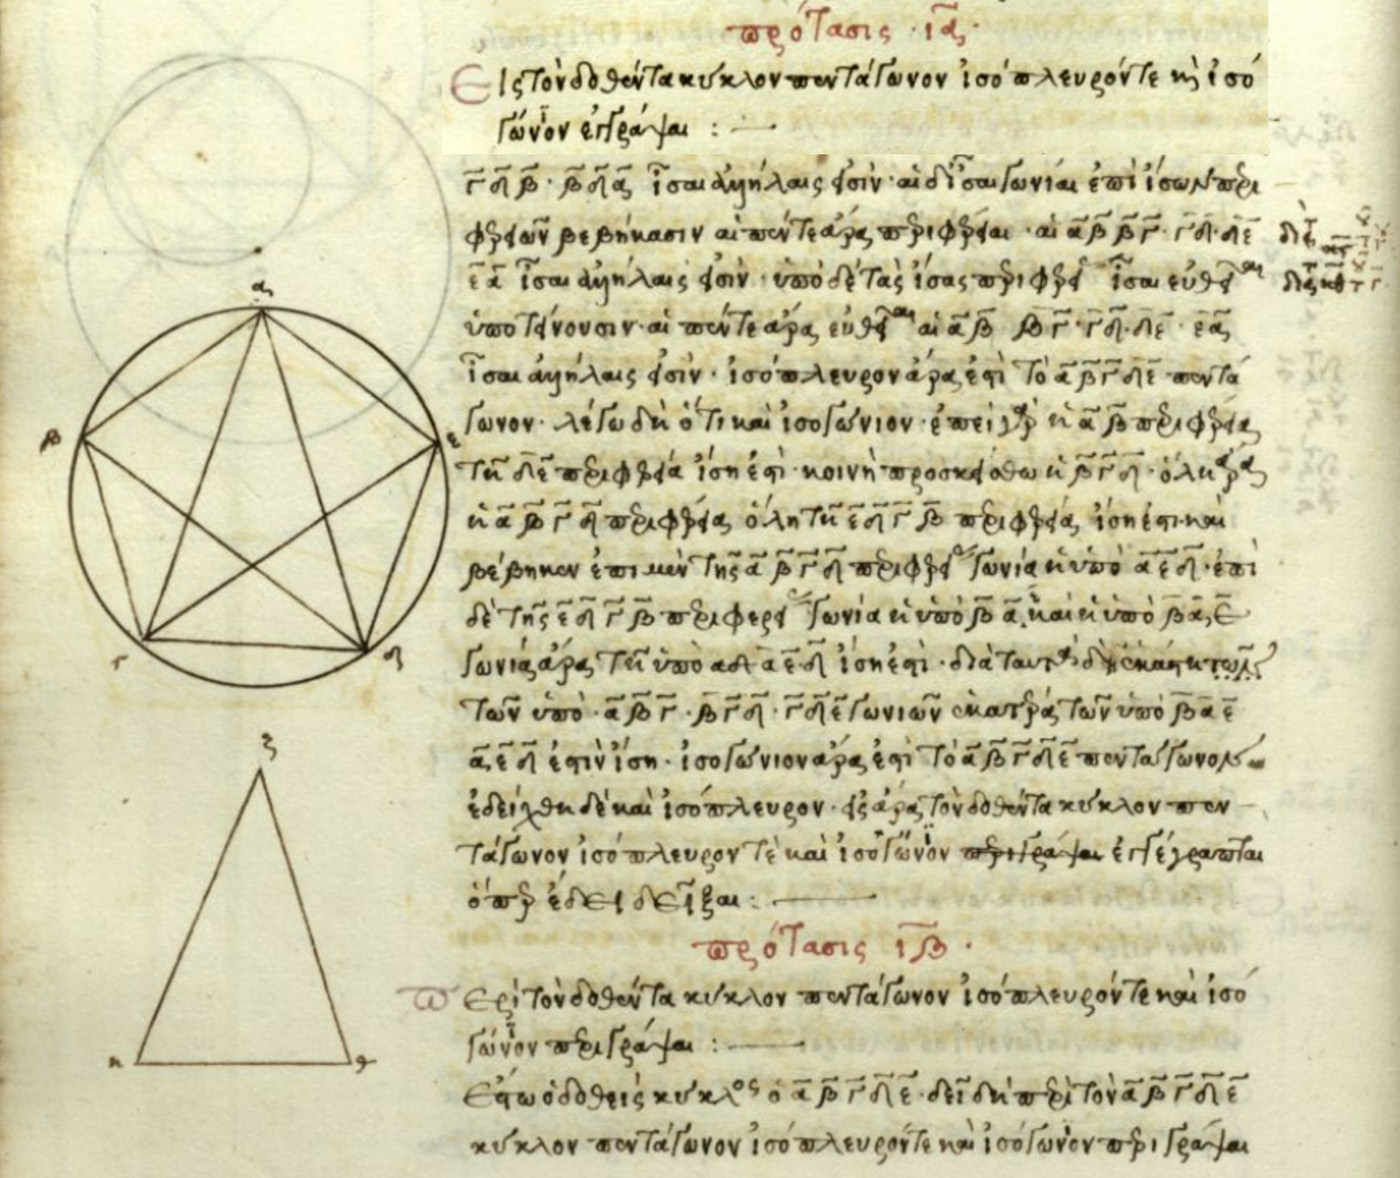 πρότασις ·ια·
Εἰς τὸν δοθέντα κύκλον πεντάγωνον ἰσόπλευρόν τε κὴ ἰσο
γώνιον ἐγγράψαι :—
γδβ · βδα ἴσαι ἀλλήλαις εἰσίν· αἱ δὲ ἴσαι γωνίαι ἐπὶ ἴσων περι
φερειῶν βεβήκασιν αἱ πέντε ἄρα περιφέρειαι · αἱ αβ βγ · γδ · δε
εα ἴσαι ἀλλήλαις εἰσίν · ὑπὸ δὲ τὰς ἴσας περιφερεί ἴσαι εὐθεῖαι
ὑποτείνουσιν· αἱ πέντε ἄρα εὐθεῖαι αἱ αβ βγ · γδ · δε · εα
ἴσαι ἀλλήλαις εἰσίν · ἰσόπλευρον ἄρα ἐστὶ τὸ αβγδε πεντά
γωνον · λέγω δὴ ὅτι καὶ ἰσογώνιον · ἐπεὶ γὰρ ἡ αβ περιφέρεια
τῆ δε περιφερεία ἴση ἐστί · κοινὴ προσκείσθω ἡ βγδ · ὅλη ἄρα
ἡ αβγδ περιφέρεια ὅλη τῆ εδγβ περιφερεία ἴση ἐστί· καὶ
βέβηκεν ἐπὶ μὲν τῆς αβγδ περιφερείας γωνία ἡ ὑπὸ αεδ · ἐπὶ
δὲ τῆς εδγβ περιφερείας γωνία ἡ ὑπὸ βα, καὶ ἡ ὑπὸ βαε
γωνία ἄρα τῆ ὑπὸ αεδ ἴση ἐστί · διὰ ταυτὰ δὴ
τῶν ὑπὸ · αβγ · βγδ · γδε γωνιῶν ἑκατέρα τῶν ὑπὸ βαε
αεδ ἐστὶν ἴση · ἰσογώνιον ἄρα ἐστὶ τὸ αβγδε πεντάγωνον
ἐδείχθη δὲ καὶ ἰσόπλευρον · εἰς ἄρα τὸν δοθέντα κύκλον πεν
τάγωνον ἰσόπλευρον τὲ καὶ ἰσογώνιον περιγράψαι ἐγγέγραπται
ὅπερ ἔδει δεῖξαι :—
πρότασις ιβ ·
Περὶ τὸν δοθέντα κύκλον πεντάγωνον ἰσόπλευρόν τε καὶ ἰσο
γώνιον περιγράψαι :—
Ἔστω ὁ δοθεὶς κύκλος ὁ αβγδε · δεῖ δὴ περὶ τὸν αβγδε
κύκλον πεντάγωνον ἰσόπλευρόν τε καὶ ἰσογώνιον περιγράψαι
α
β
ε
γ
δ
ζ
η
θ